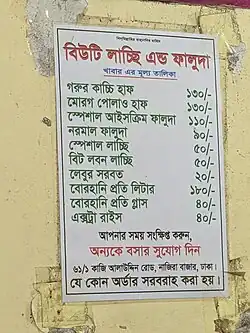 বিউটি লাচ্ছি এন্ড ফালুদা
খাবার এর মূল্য তালিকা
গরুর কাচ্চি হাফ ১৩০/-
মোরগ পোলাও হাফ ১৩০/-
স্পেশাল আইসক্রিম ফালুদা ১১০/-
নরমাল ফালুদা ৯০/-
স্পেশাল লাচ্ছি ৫০/-
বিট লবন লাচ্ছি ৫০/-
লেবুর সরবত ২০/-
বোরহানি প্রতি লিটার ১৮০/-
বোরহানি প্রতি গ্লাস ৪০/-
এক্সট্রা রাইস ৪০/-
আপনার সময় সংক্ষিপ্ত করুন,
অন্যকে বসার সুযোগ দিন
৬১/১ কাজি আলাউদ্দিন রোড, নাজিরা বাজার, ঢাকা।
যে কোন অর্ডার সরবরাহ করা হয়।